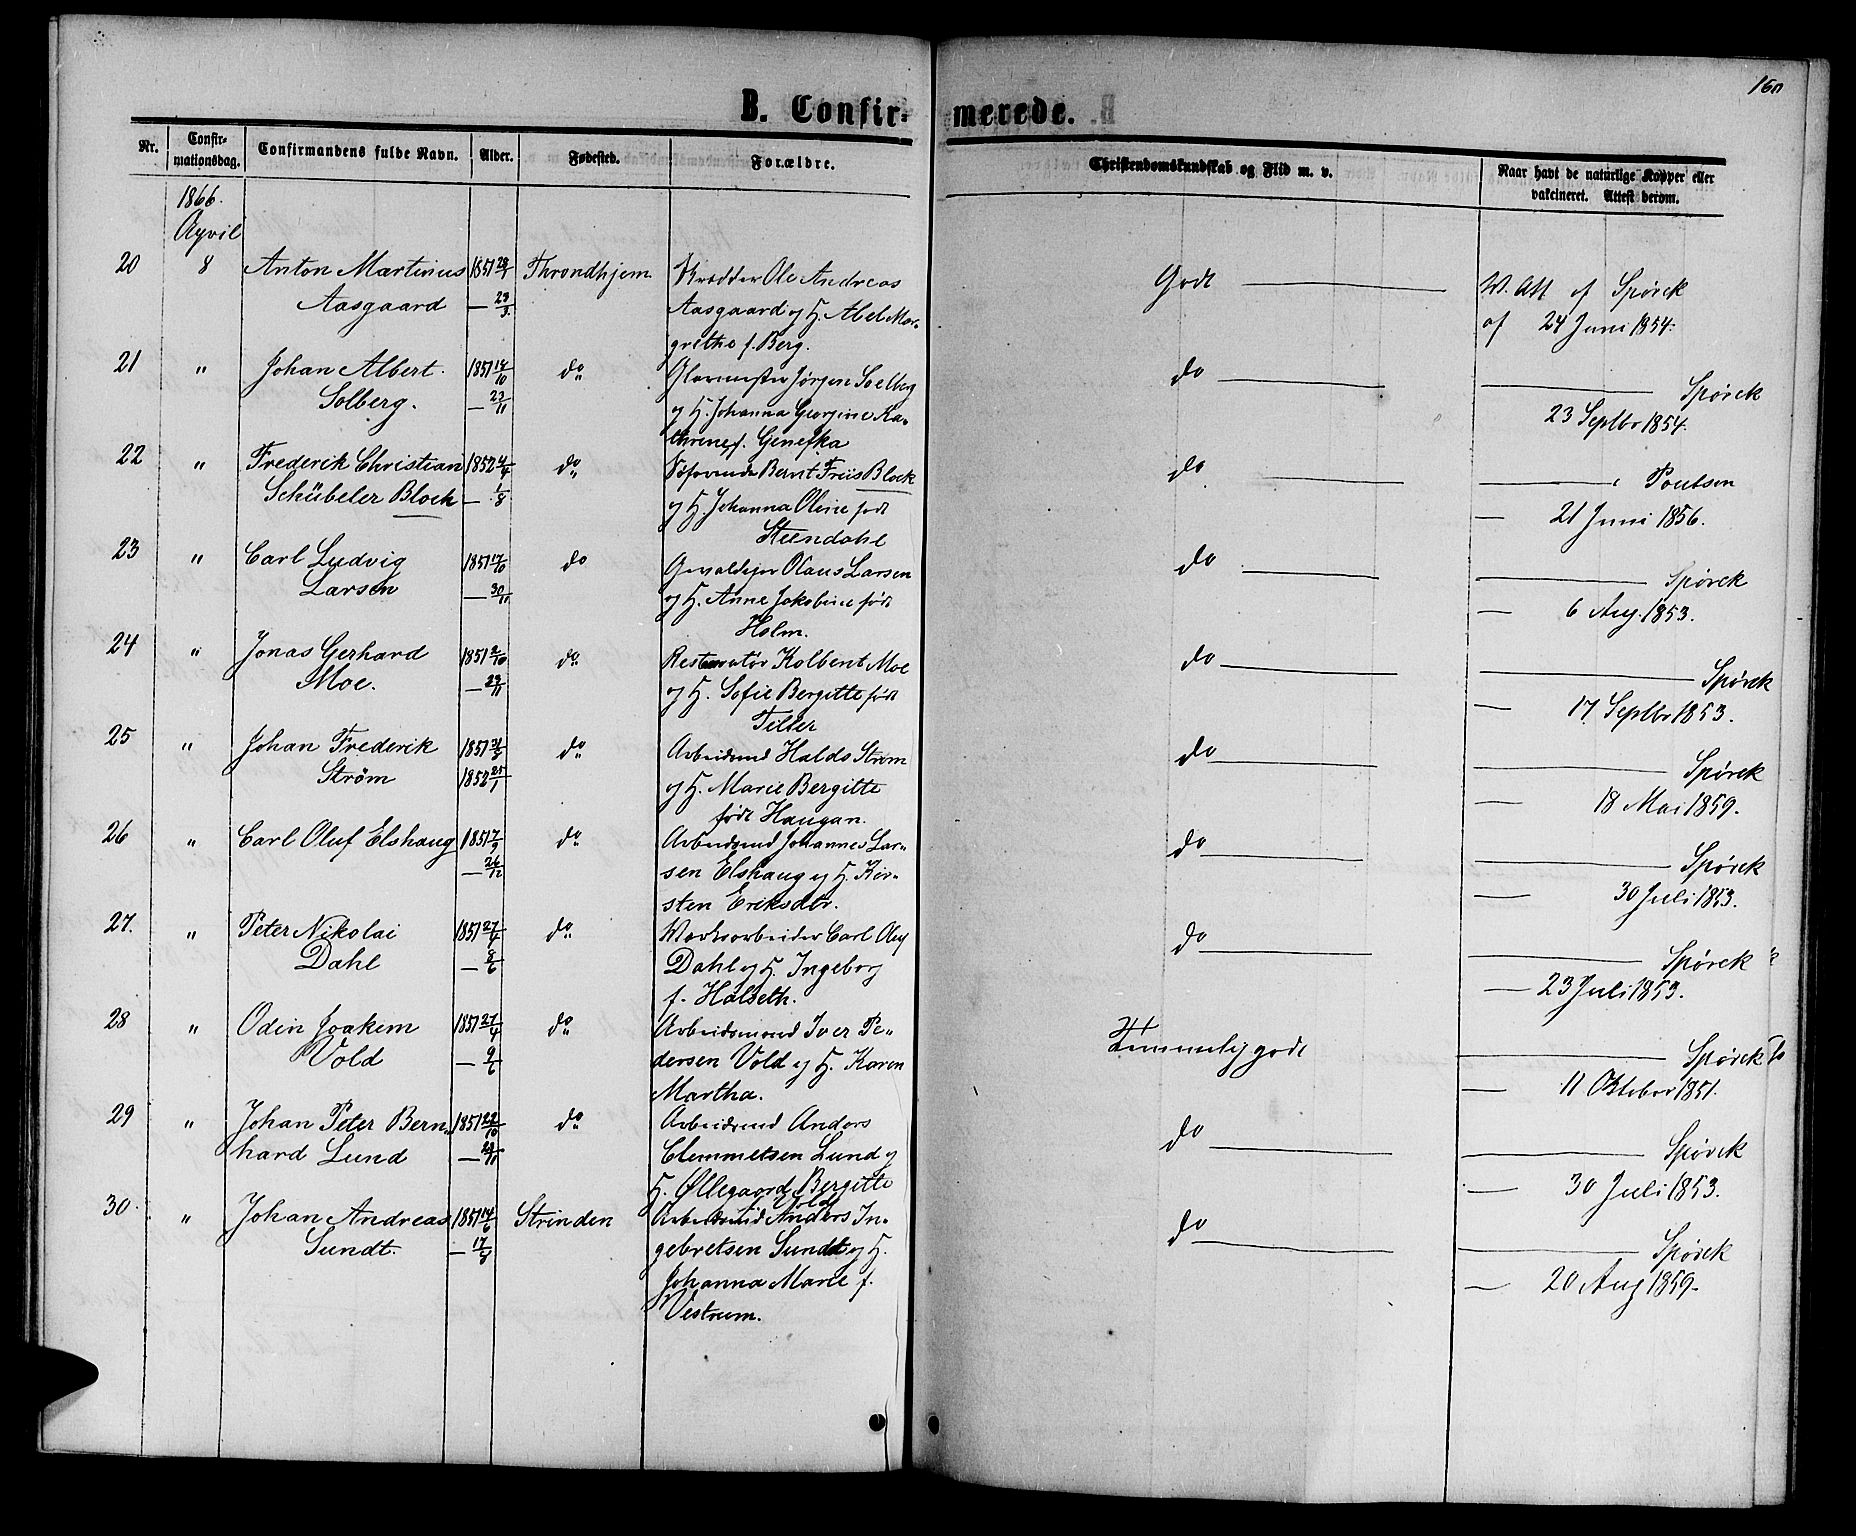 160
B. Confir-merede.
Nr. Confir-mationsdag. Confirmandens fulde Navn. Alder. Fødested. Forældre. Christendomskundskab og Flid m. v. Naar havt de naturlige Kopper eller vakcineret. Attest derom.
1866.
April
20 8 Anton Martinius 1851 Throndhjem Skrædder Ole Andreas Godt W. Att af Spørck
Aasgaard — 23/3 Aasgaard og H. Abel Mar- af 24 Juni 1854.
grethe f. Berg.
21 " Johan Albert 1851 14/10 do Glarmester Jørgen Solberg do Spørck
Solberg. — 23/11 og H. Johanna Georgine Ka- 23 Septbr 1854.
thrine f. Genefka
22 " Frederik Christian 1852 4/4 do Søfarende Bernt Friis Block do Poulsen
Schübeler Bloch — 1/8 og H. Johanna Oline født — 21 Juni 1856.
Steendahl
23 " Carl Ludvig 1851 17/10 do Gevaldiger Olaus Larsen do Spørck
Larsen — 30/11 og H. Anne Jakobine født — 6 Aug. 1853.
Holm.
24 " Jonas Gerhard 1851 2/10 do Restauratør Kolbent Moe do Spørck
Moe. — 23/11 og H. Sofie Bergitte født — 17 Septbr 1853.
Teller
25 " Johan Frederik 1851 do Arbeidsmd Halds Strøm do Spørck
Strøm 1852 25/1 og H. Marie Bergitte — 18 Mai 1859.
født Haugan.
26 " Carl Oluf Elshaug 1851 17/9 do Arbeidsmd Johannes Lar- do Spørck
— 26/12 sen Elshaug og H. Kir- — 30 Juli 1853.
sten Eriksdtr.
27. " Peter Nikolai 1851 27/4 do Værksarbeider Carl Oluf do Spørck
Dahl — 8/6 Dahl og H. Ingeborg — 23 Juli 1853.
f. Halseth.
28 " Odin Joakim 1851 27/4 do Arbeidsmand Iver Pe- Temmelig godt Spørck
Vold — 9/6 dersen Vold og H. Karen — 11 Oktober 1851.
Martha.
29 " Johan Peter Bern- 1851 22/10 do Arbeidsmd Anders do Spørck
hard Lund — 23/11 Clemmetsen Lund og — 30 Juli 1853.
H. Øllegaard Bergitte
f. Vold
30. " Johan Andreas 1851 14/6 Strinden Arbeidsmd Anders In- do Spørck
Sundt. — gebretsen Sundt og H. — 20 Aug 1859.
Johanna Marie f.
Vestrum.